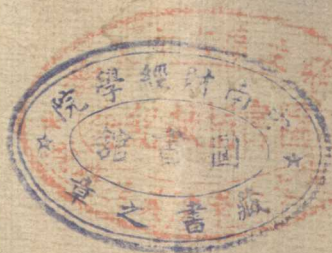 中南財經學院
圖書館
藏書之章